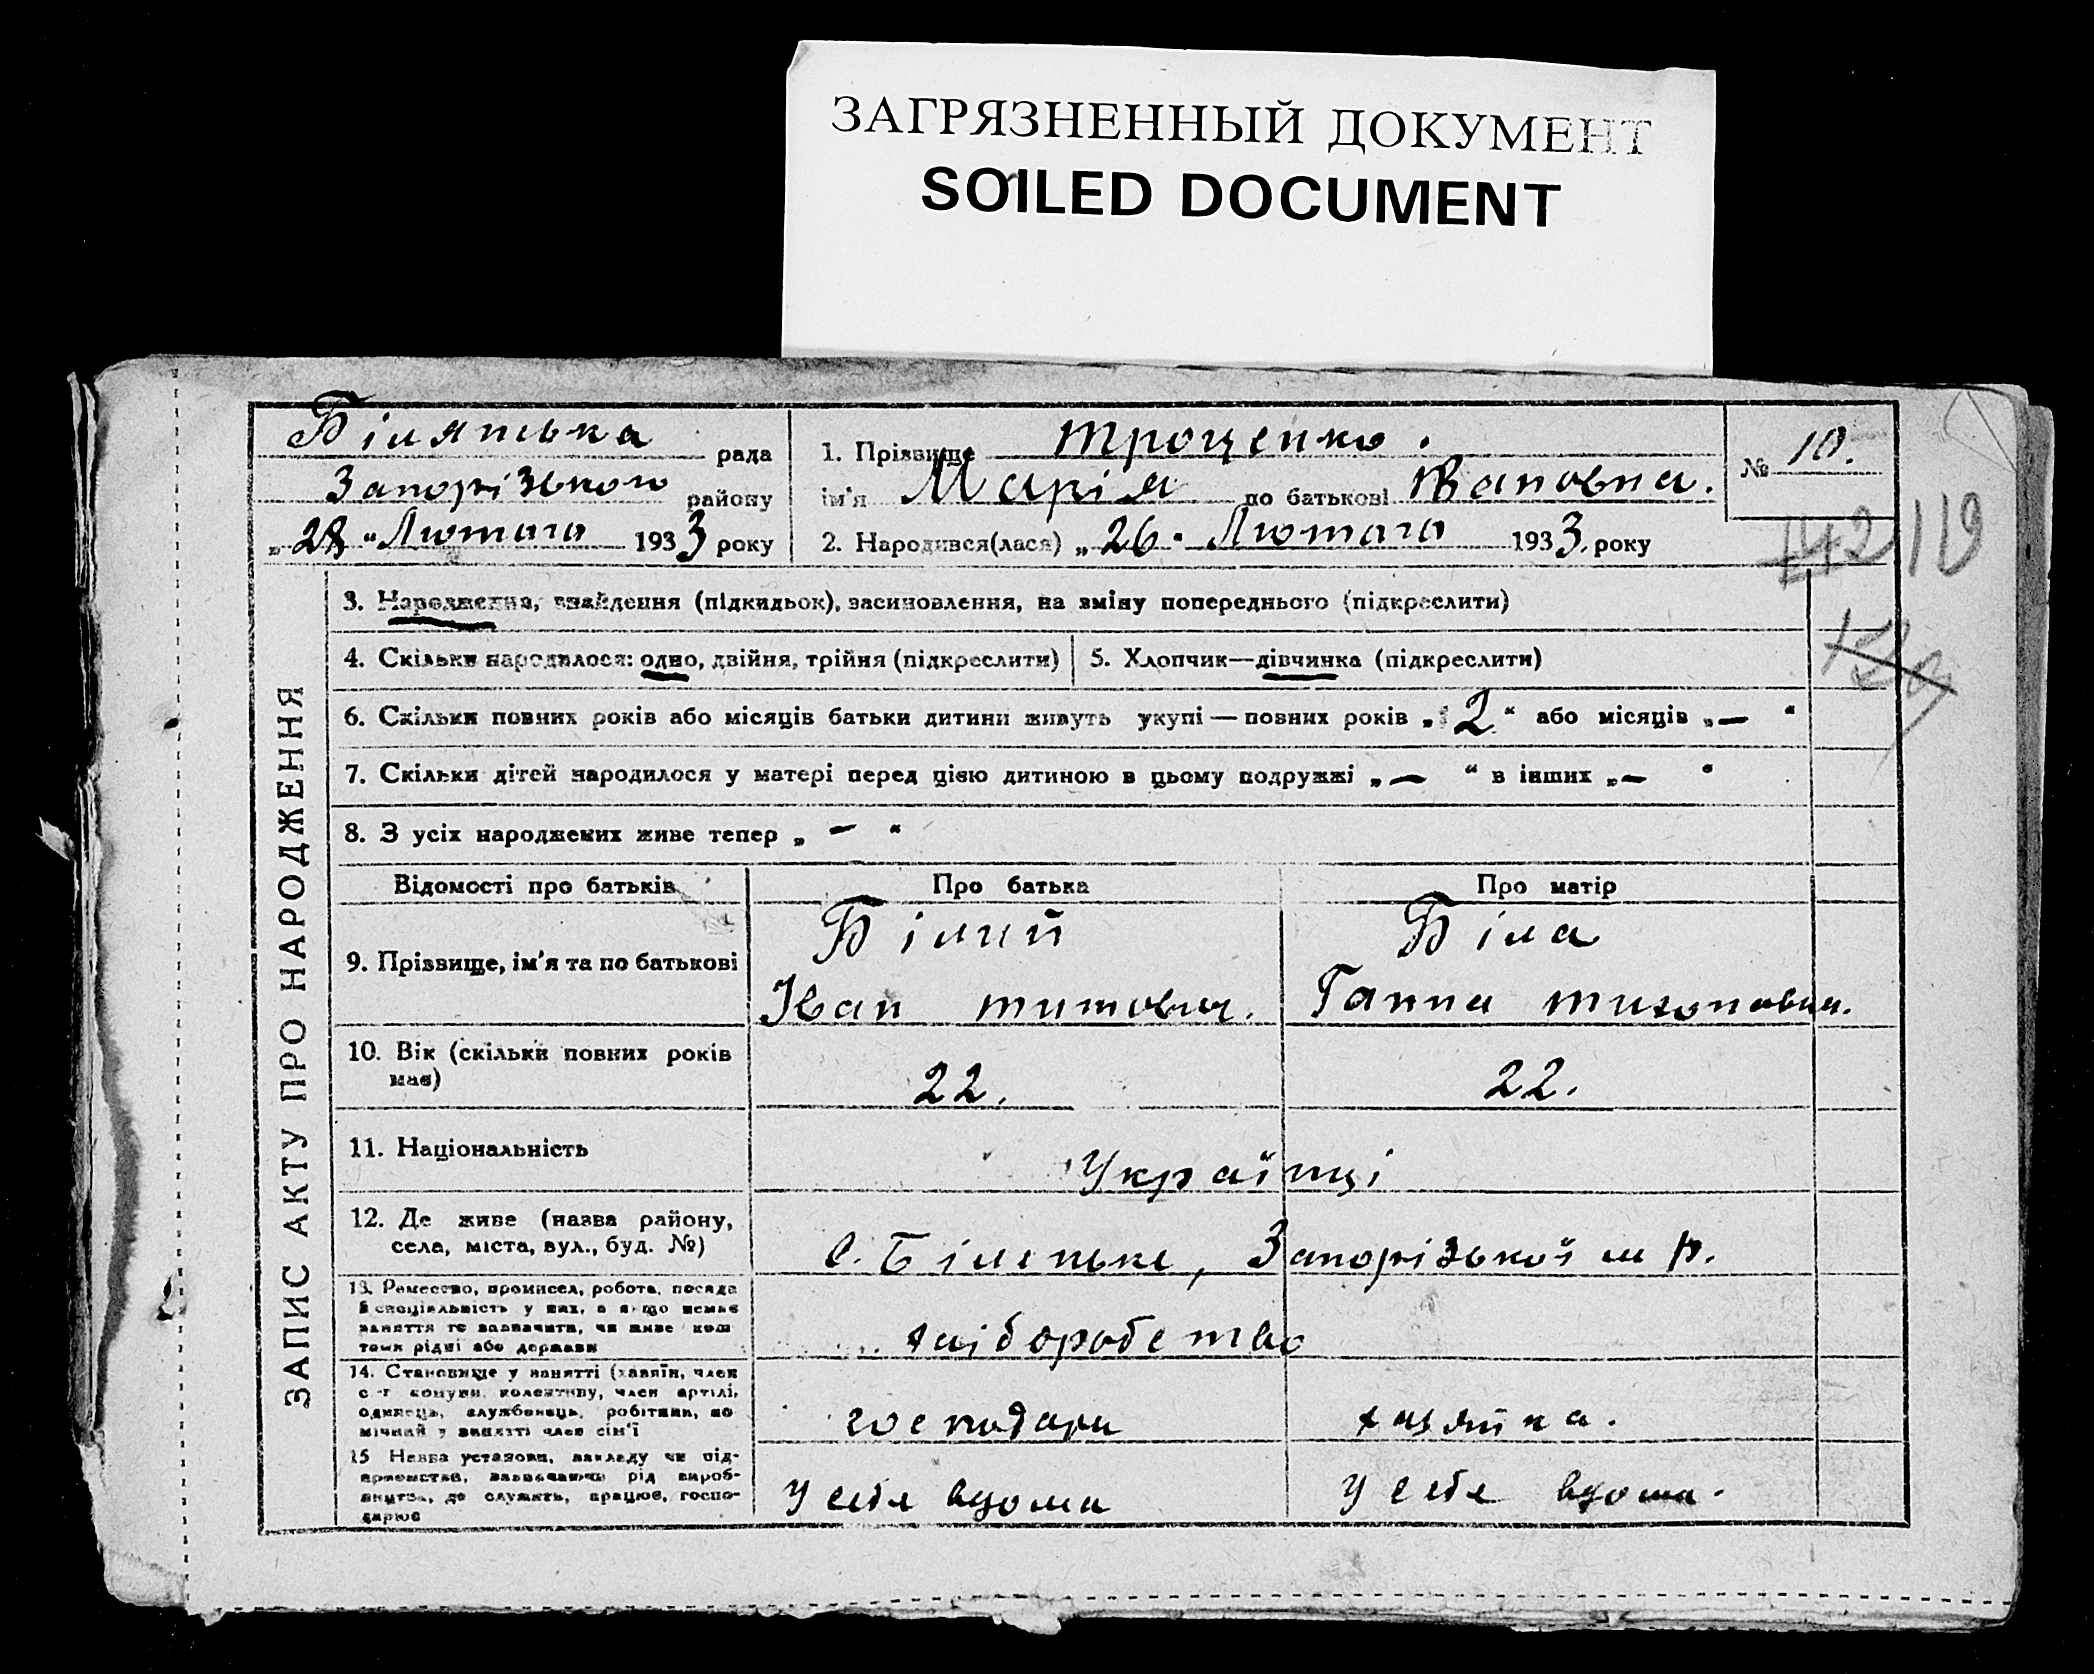 ЗАГРЯЗНЕННЫЙ ДОКУМЕНТ
SOILED DOCUMENT
рада
Запорізького району
„28“ Лютого 1933 року
1. Прізвище Троценко.
ім'я Марія по батькові Івановна.
2. Народився(лася) „26“ Лютого 1933 року
№ 10.
142 119
ЗАПИС АКТУ ПРО НАРОДЖЕННЯ
3. Народження, знайдення (підкидьок), засиновлення, на зміну попереднього (підкреслити)
4. Скільки народилося: одно, двійня, трійня (підкреслити)
5. Хлопчик—дівчинка (підкреслити)
6. Скільки повних років або місяців батьки дитини живуть укупі — повних років „2“ або місяців „—“
7. Скільки дітей народилося у матері перед цією дитиною в цьому подружжі „—“ в інших „—“
8. З усіх народжених живе тепер „—“
Відомості про батьків
Про батька
Про матір
9. Прізвище, ім'я та по батькові
Білий
Іван Титович.
Біла
Ганна Тихоновна.
10. Вік (скільки повних років
має)
22.
22.
11. Національність
Українці
12. Де живе (назва району,
села, міста, вул., буд. №)
с. Біленьке, Запорізької м р.
13. Ремесство, промисел, робота, посада
й спеціяльність у них, а якщо немає
заняття то зазначити, чи живе кош
тами рідні або держави
хліборобство
14. Становище у занятті (хазяїн, член
с-г комуни, колективу, член артілі,
одинець, службовець, робітник, по
мічний у занятті член сім'ї
господари
хазяйка.
15 Назва установи, закладу чи під-
приємства, зазначаючи рід вироб-
ництва, де служить, працює, госпо-
дарює
у себя вдома
у себя вдома.